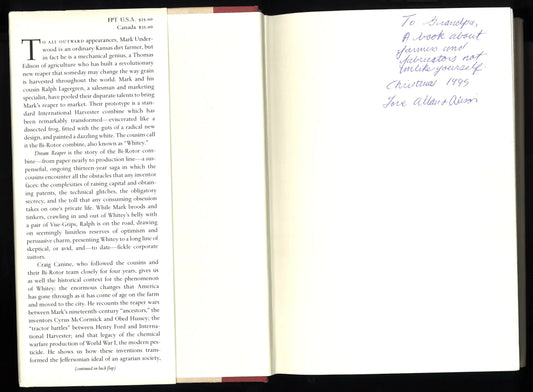 FPT U.S.A. $25.00
Canada $35.00
TO ALL OUTWARD appearances, Mark Under-
wood is an ordinary Kansas dirt farmer, but
in fact he is a mechanical genius, a Thomas
Edison of agriculture who has built a revolutionary
new reaper that someday may change the way grain
is harvested throughout the world. Mark and his
cousin Ralph Lagergren, a salesman and marketing
specialist, have pooled their disparate talents to bring
Mark's reaper to market. Their prototype is a stan-
dard International Harvester combine which has
been remarkably transformed—eviscerated like a
dissected frog, fitted with the guts of a radical new
design, and painted a dazzling white. The cousins call
it the Bi-Rotor combine, also known as "Whitey."
Dream Reaper is the story of the Bi-Rotor com-
bine—from paper nearly to production line—a sus-
penseful, ongoing thirteen-year saga in which the
cousins encounter all the obstacles that any inventor
faces: the complexities of raising capital and obtain-
ing patents, the technical glitches, the obligatory
secrecy, and the toll that any consuming obsession
takes on one's private life. While Mark broods and
tinkers, crawling in and out of Whitey's belly with
a pair of Vise-Grips, Ralph is on the road, drawing
on seemingly limitless reserves of optimism and
persuasive charm, presenting Whitey to a long line of
skeptical, or avid, and—to date—fickle corporate
suitors.
Craig Canine, who followed the cousins and
their Bi-Rotor team closely for four years, gives us
as well the historical context for the phenomenon
of Whitey: the enormous changes that America
has gone through as it has come of age on the farm
and moved to the city. He recounts the reaper wars
between Mark's nineteenth-century "ancestors," the
inventors Cyrus McCormick and Obed Hussey; the
"tractor battles" between Henry Ford and Interna-
tional Harvester; and that legacy of the chemical
warfare production of World War I, the modern pes-
ticide. He shows us how these inventions trans-
formed the Jeffersonian ideal of an agrarian society,
(continued on back flap)
To Grandpa,
A book about
farmers and
fabricators not
unlike yourself
Christmas 1995
Love